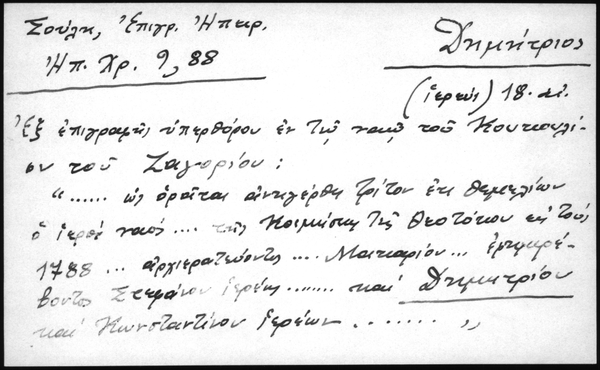 Σούλη, Ἐπιγρ. Ἠπειρ.
Ἠπ. Χρ. 9, 88
Δημήτριος
(ἱερεύς) 18. αἰ.
Ἐξ ἐπιγραφῆς ὑπερθύρου ἐν τῷ ναῷ τοῦ Κουκουλί-
ου τοῦ Ζαγορίου :
"...... ὡς ὁρᾶται ἀνηγέρθη τρίτον ἐκ θεμελίων
ὁ ἱερός ναός .... τῆς Κοιμήσεως τῆς Θεοτόκου εἰς τούς
1788 ... ἀρχιερατεύοντος .... Μακαρίου ... ἐφημερέ-
βοντος Στεφάνου ἱερέως ........ καί Δημητρίου
καί Κωνσταντίνου ἱερέων ........ "